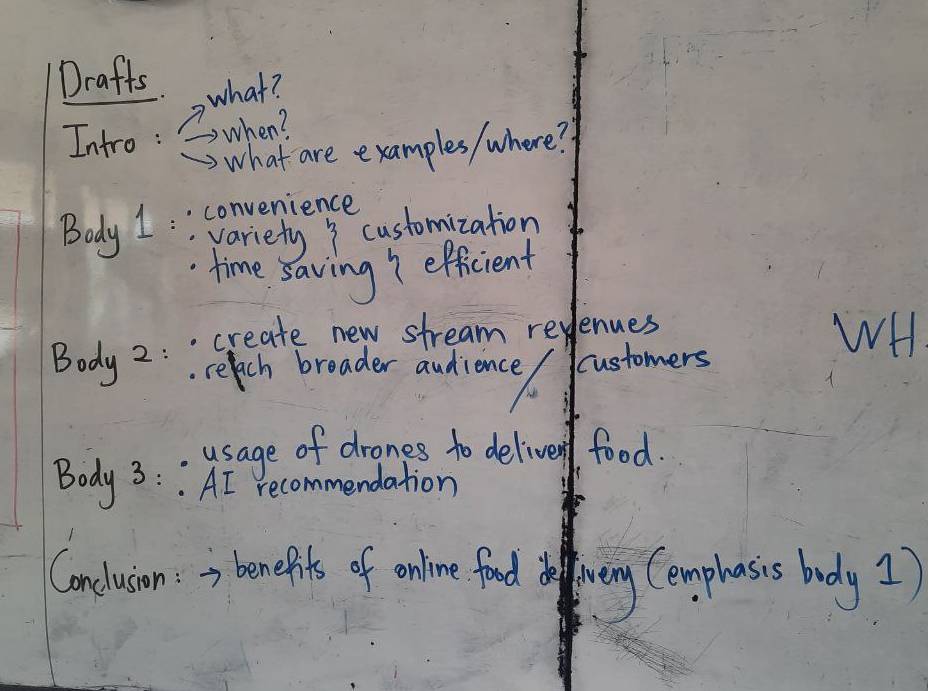 Drafts.
Intro : → what?
→ when?
→ what are examples/where?
Body 1 : · convenience
· variety & customization
· time saving & efficient
Body 2 : · create new stream revenues
· reach broader audience / customers
WH
Body 3 : · usage of drones to deliver food.
· AI recommendation
Conclusion : → benefits of online food delivery (emphasis body 1)